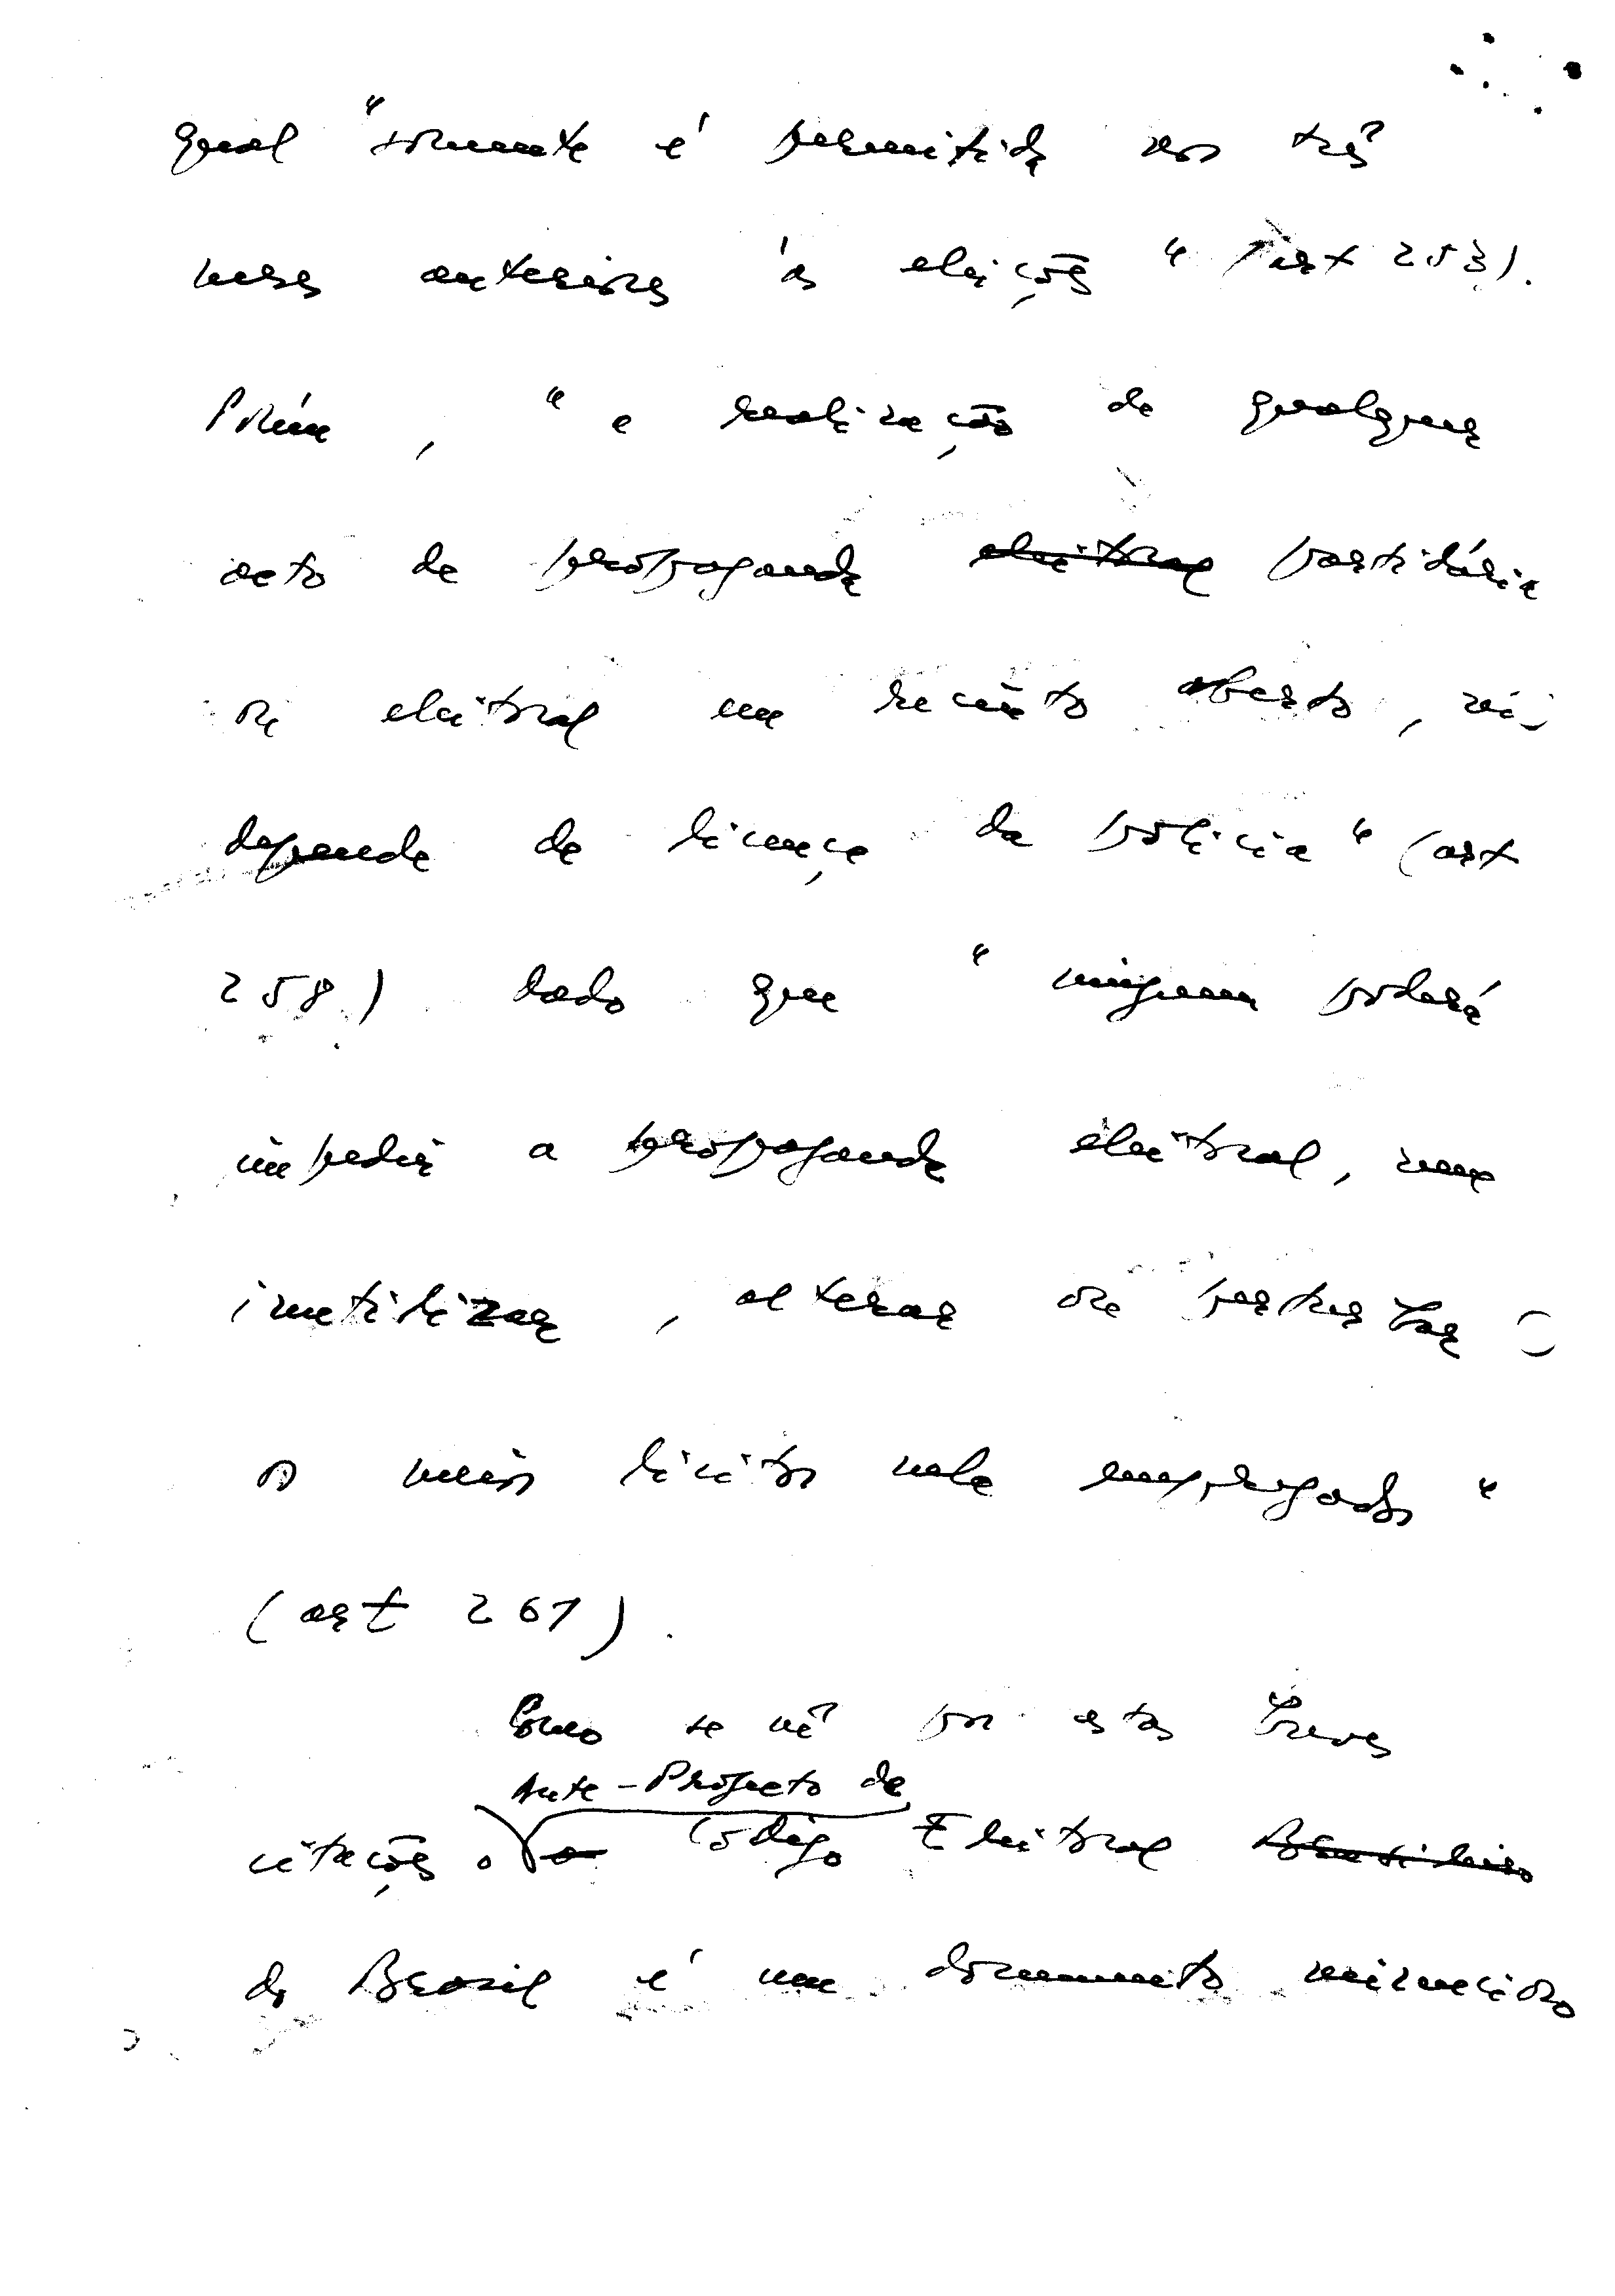 qual "somente é permitida nos três
meses anteriores às eleições" (art 253).
Porém, "a realização de qualquer
acto de propaganda eleitoral partidária
ou eleitoral em recinto aberto, não
depende de licença da polícia" (art
258) dado que "ninguem poderá
impedir a propaganda eleitoral, nem
inutilizar, alterar ou perturbar
os meios lícitos nela empregados"
(art 261).
Como se vê por estas breves
Ante-Projecto de
citações o o Código Eleitoral Brasileiro
do Brasil é um documento minucioso